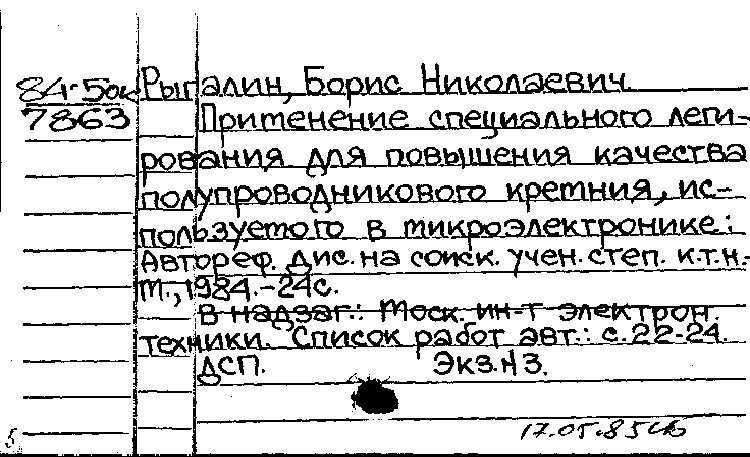 84-5ок Рыгалин, Борис Николаевич.
7863 Применение специального леги-
рования для повышения качества
полупроводникового кремния, ис-
пользуемого в микроэлектронике:
Автореф. дис. на соиск. учен. степ. к.т.н.-
М., 1984.-24с.
В надзаг.: Моск. ин-т электрон.
техники. Список работ авт.: с.22-24.
ДСП. Экз.N3.
17.05.85
5